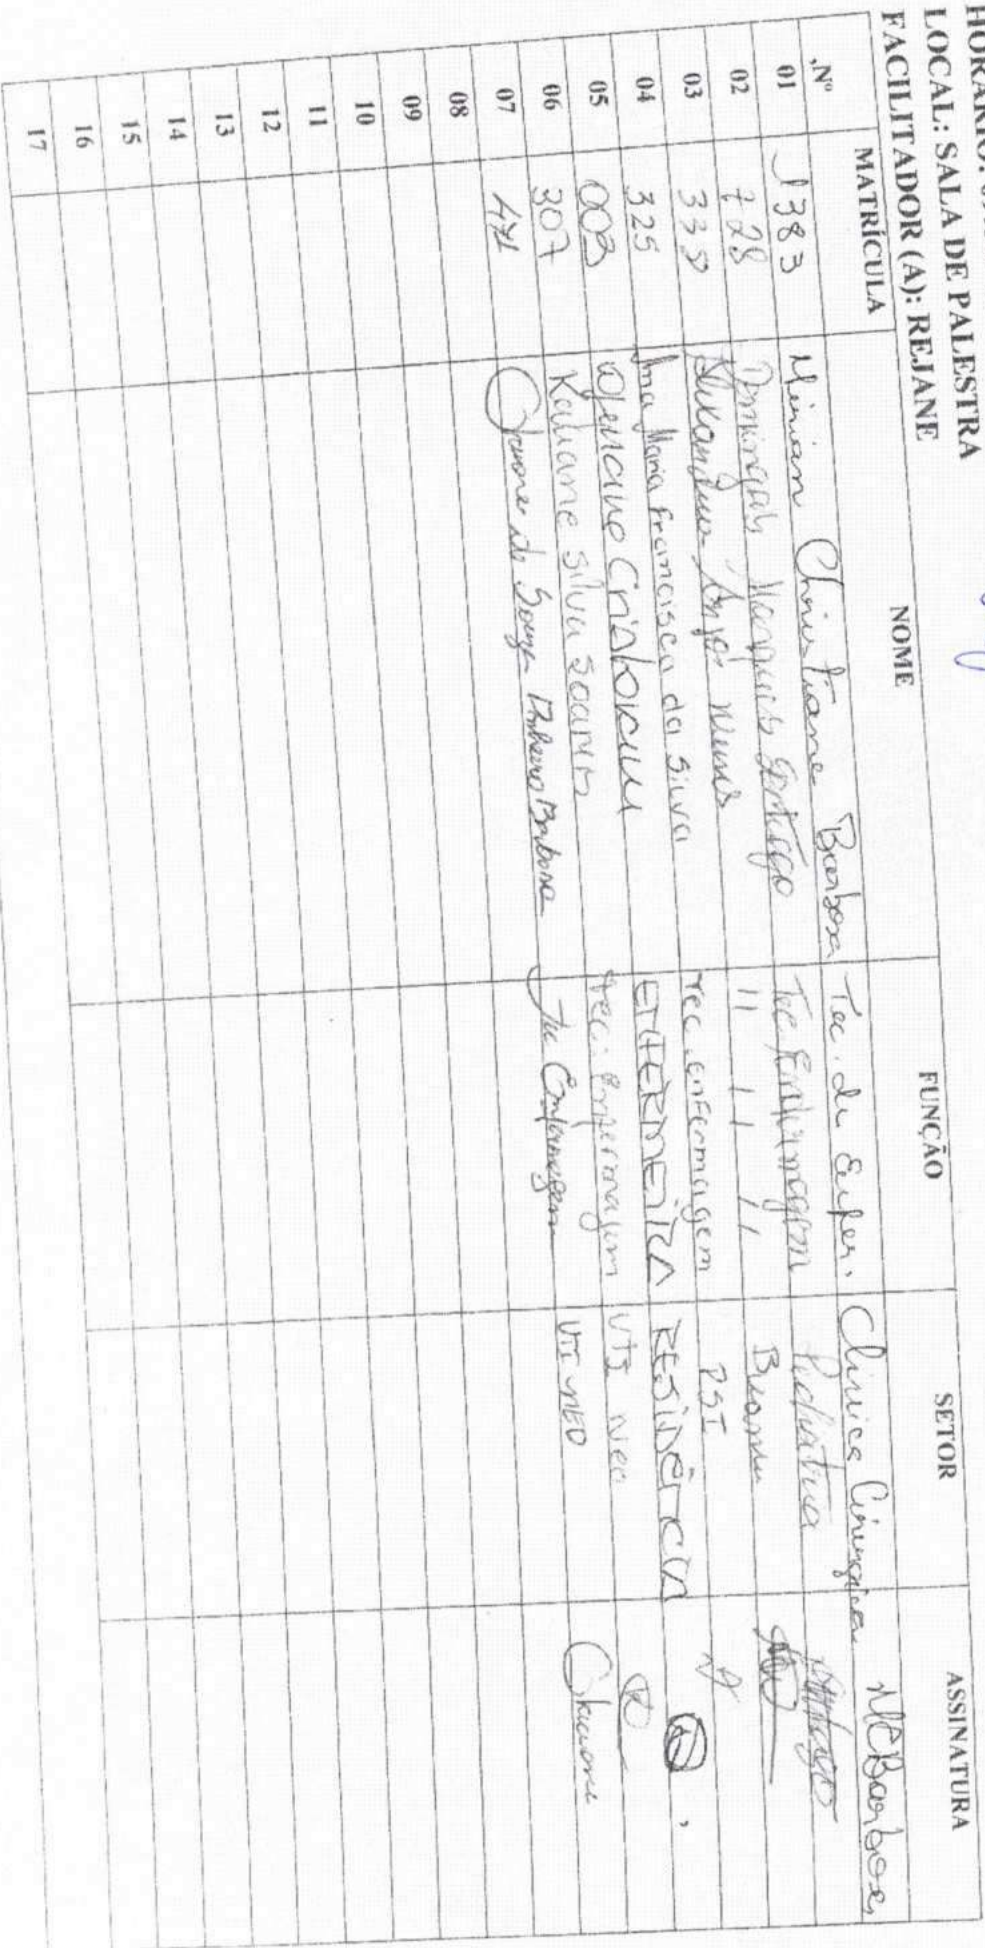 HORÁRIO:
LOCAL: SALA DE PALESTRA
FACILITADOR (A): REJANE
Nº MATRÍCULA NOME FUNÇÃO SETOR ASSINATURA
01 1383 Mirian Christiane Barbosa Tec. de Enfer. Clinica Cirurgica MCBarbosa
02 728 Domingas Marques Santiago Tec Enfermagem Pediatria Santiago
03 339 Alexandra Anjos Nunes 11 11 11
04 325 Ana Maria Francisca da Silva Tec. enfermagem PSI
05 003 Cristoviu ENFERMEIRA RESIDÊNCIA
06 307 Katiane Silva Soares tec. Enfermagem UTI Neo
07 471 de Souza Pinheiro Barbosa Tec Enfermagem UTI NEO
08
09
10
11
12
13
14
15
16
17